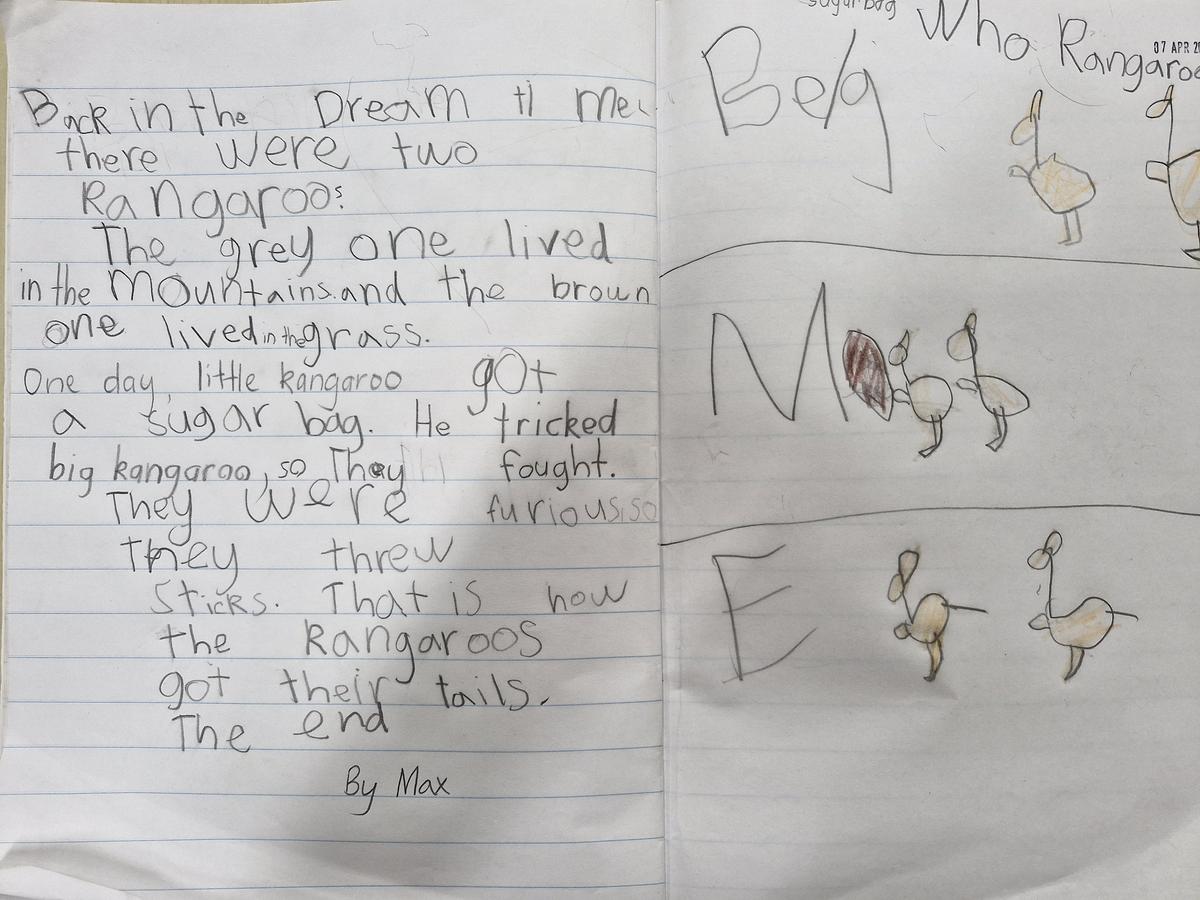 Back in the Dream ti me
there were two
Kangaroos
The grey one lived
in the mountains.and the brown
one lived in the grass.
One day, little kangaroo got
a sugar bag. He tricked
big kangaroo, so They fought.
They were furious, so
They threw
Sticks. That is how
the Kangaroos
got their tails.
The end
By Max
sugarbag
Who Kangaroo
07 APR 2
Beg
M
E